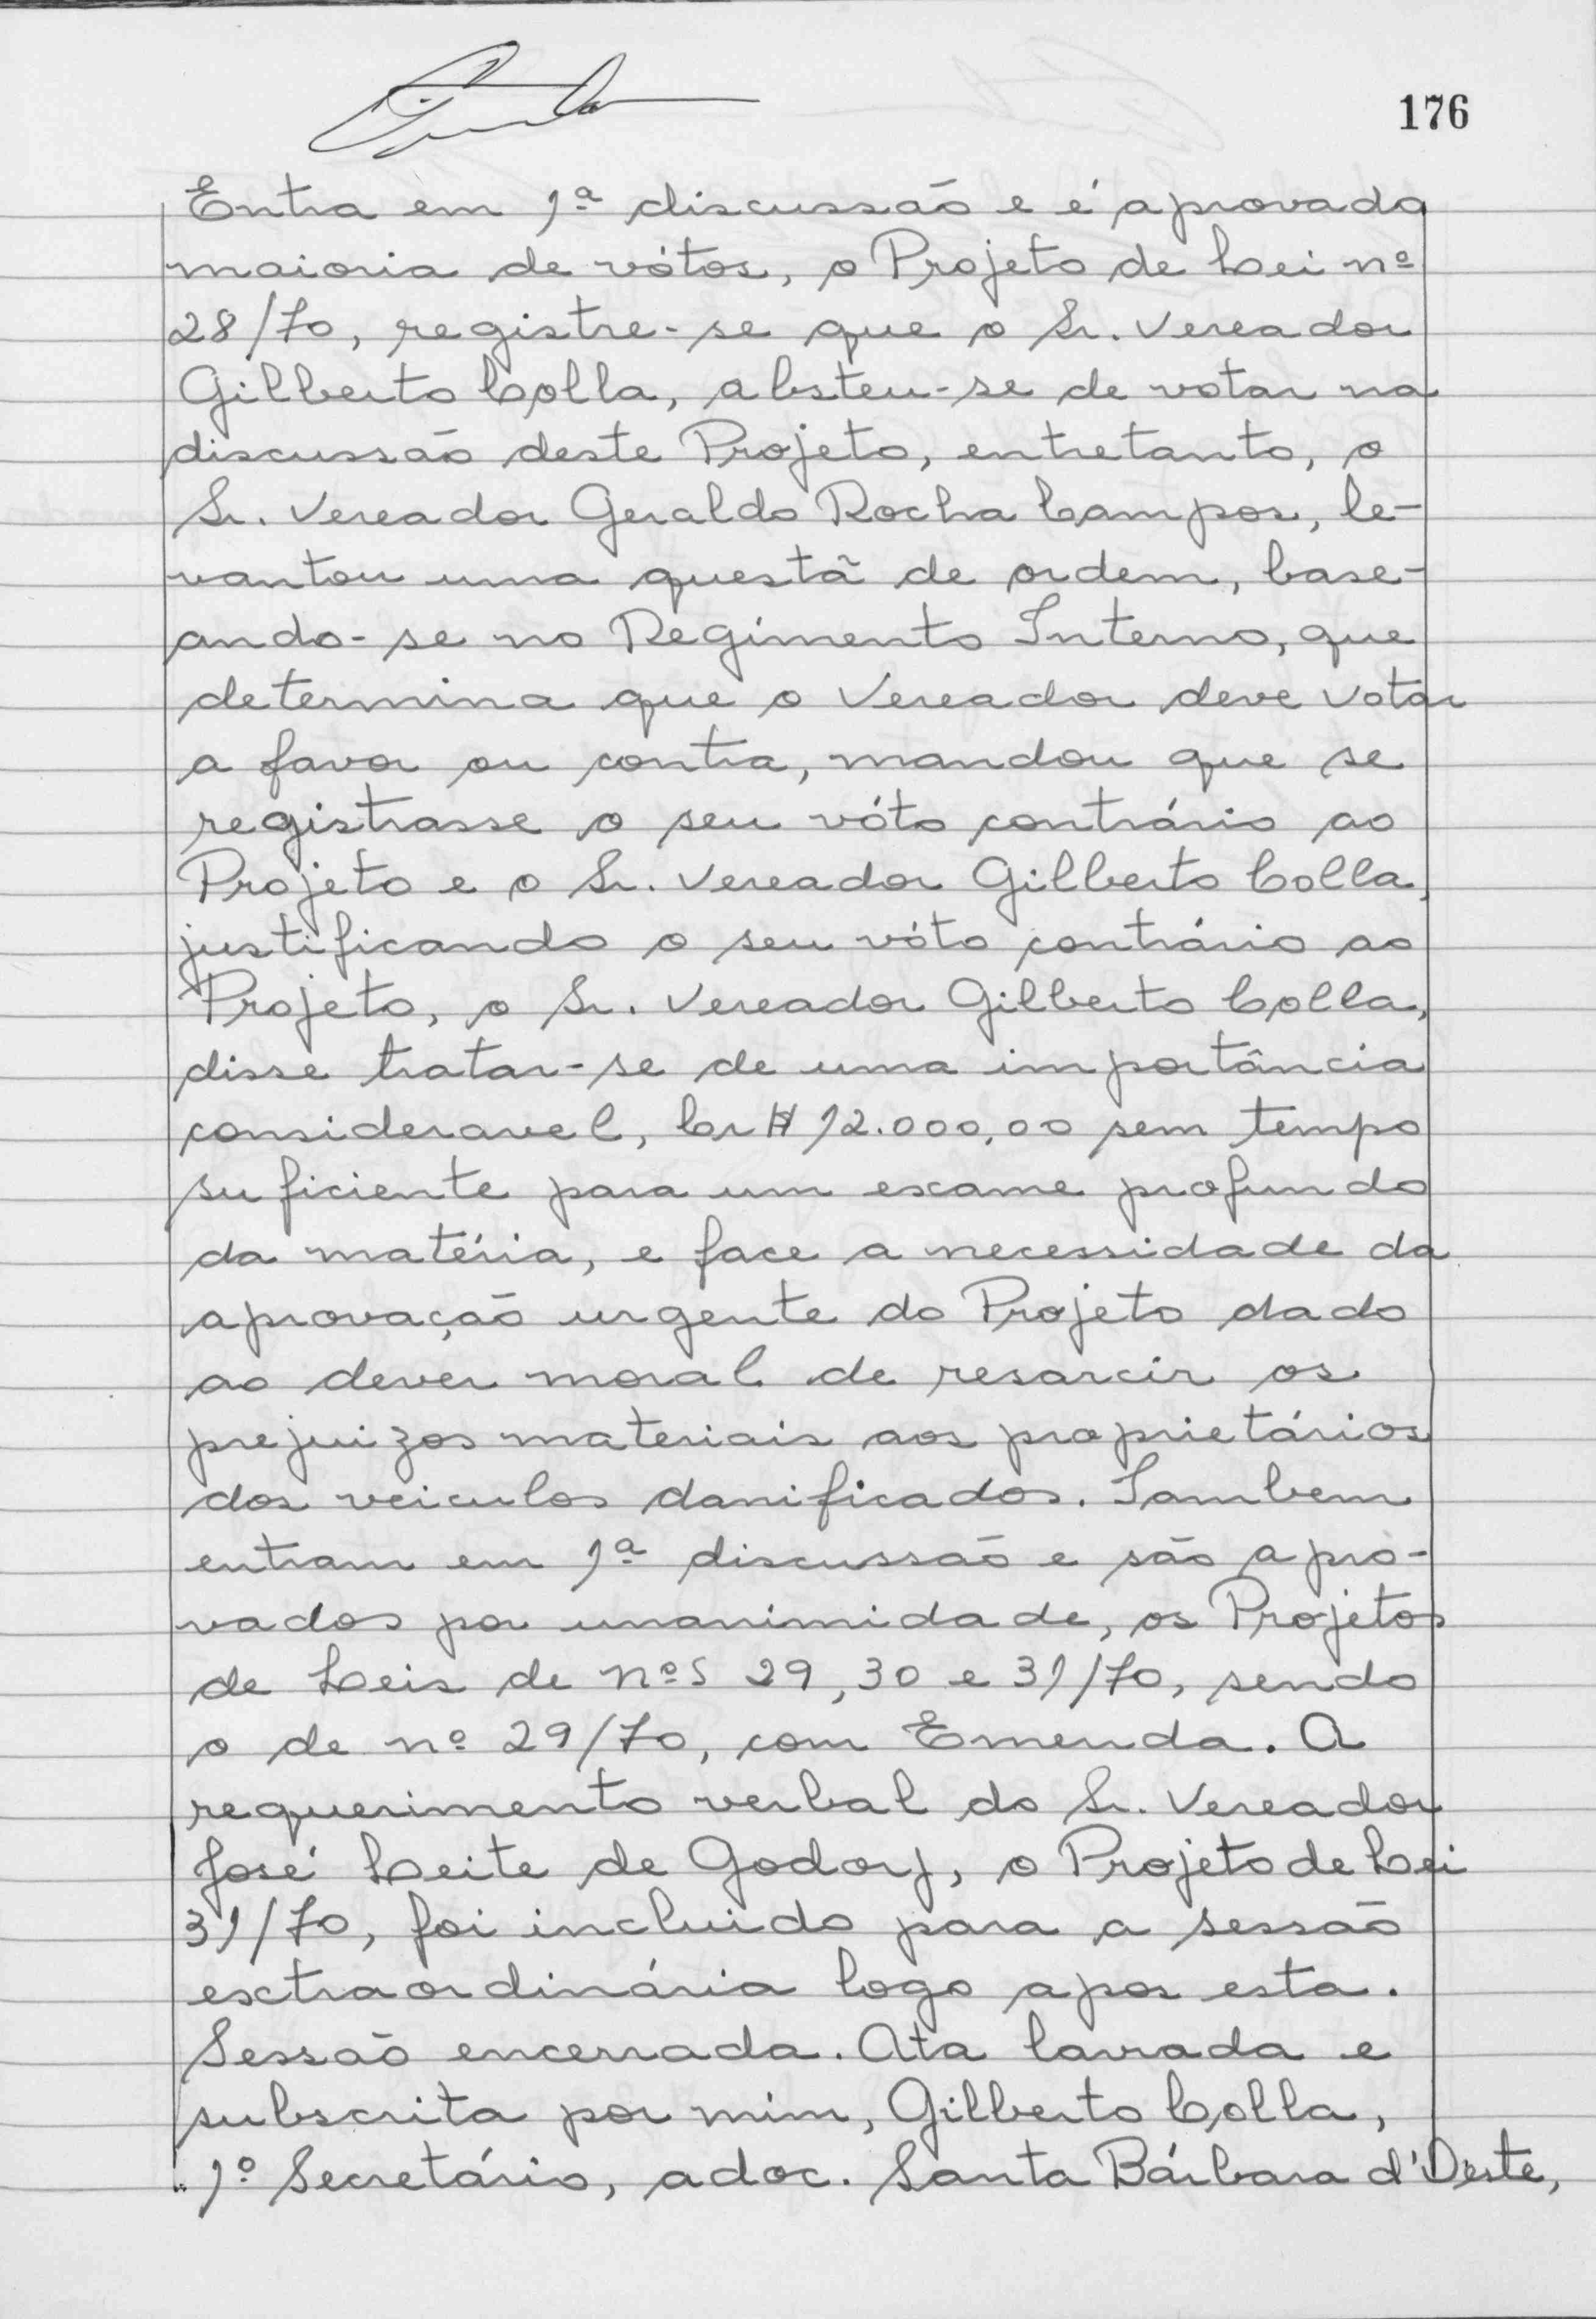 176
Entra em 1ª discussão e é aprovado
maioria de vótos, o Projeto de Lei nº
28/70, registre-se que o Sr. Vereador
Gilberto Colla, absteu-se de votar na
discussão deste Projeto, entretanto, o
Sr. Vereador Geraldo Rocha Campos, le-
vantou uma questã de ordem, base-
ando-se no Regimento Interno, que
determina que o Vereador deve votar
a favor ou contra, mandou que se
registrasse o seu vóto contrário ao
Projeto e o Sr. Vereador Gilberto Colla,
justificando o seu vóto contrário ao
Projeto, o Sr. Vereador Gilberto Colla,
disse tratar-se de uma importância
consideravel, Cr$ 12.000,00 sem tempo
suficiente para um exame profundo
da matéria, e face a necessidade da
aprovação urgente do Projeto dado
ao dever moral de resarcir os
prejuizos materiais aos proprietários
dos veiculos danificados. Tambem
entram em 1ª discussão e são apro-
vados por unanimidade, os Projetos
de Leis de nºs 29, 30 e 31/70, sendo
o de nº 29/70, com Emenda. A
requerimento verbal do Sr. Vereador
José Leite de Godoy, o Projeto de Lei
31/70, foi incluido para a sessão
extraordinária logo apos esta.
Sessão encerrada. Ata lavrada e
subscrita por mim, Gilberto Colla,
1º Secretário, adoc. Santa Bárbara d'Oeste,